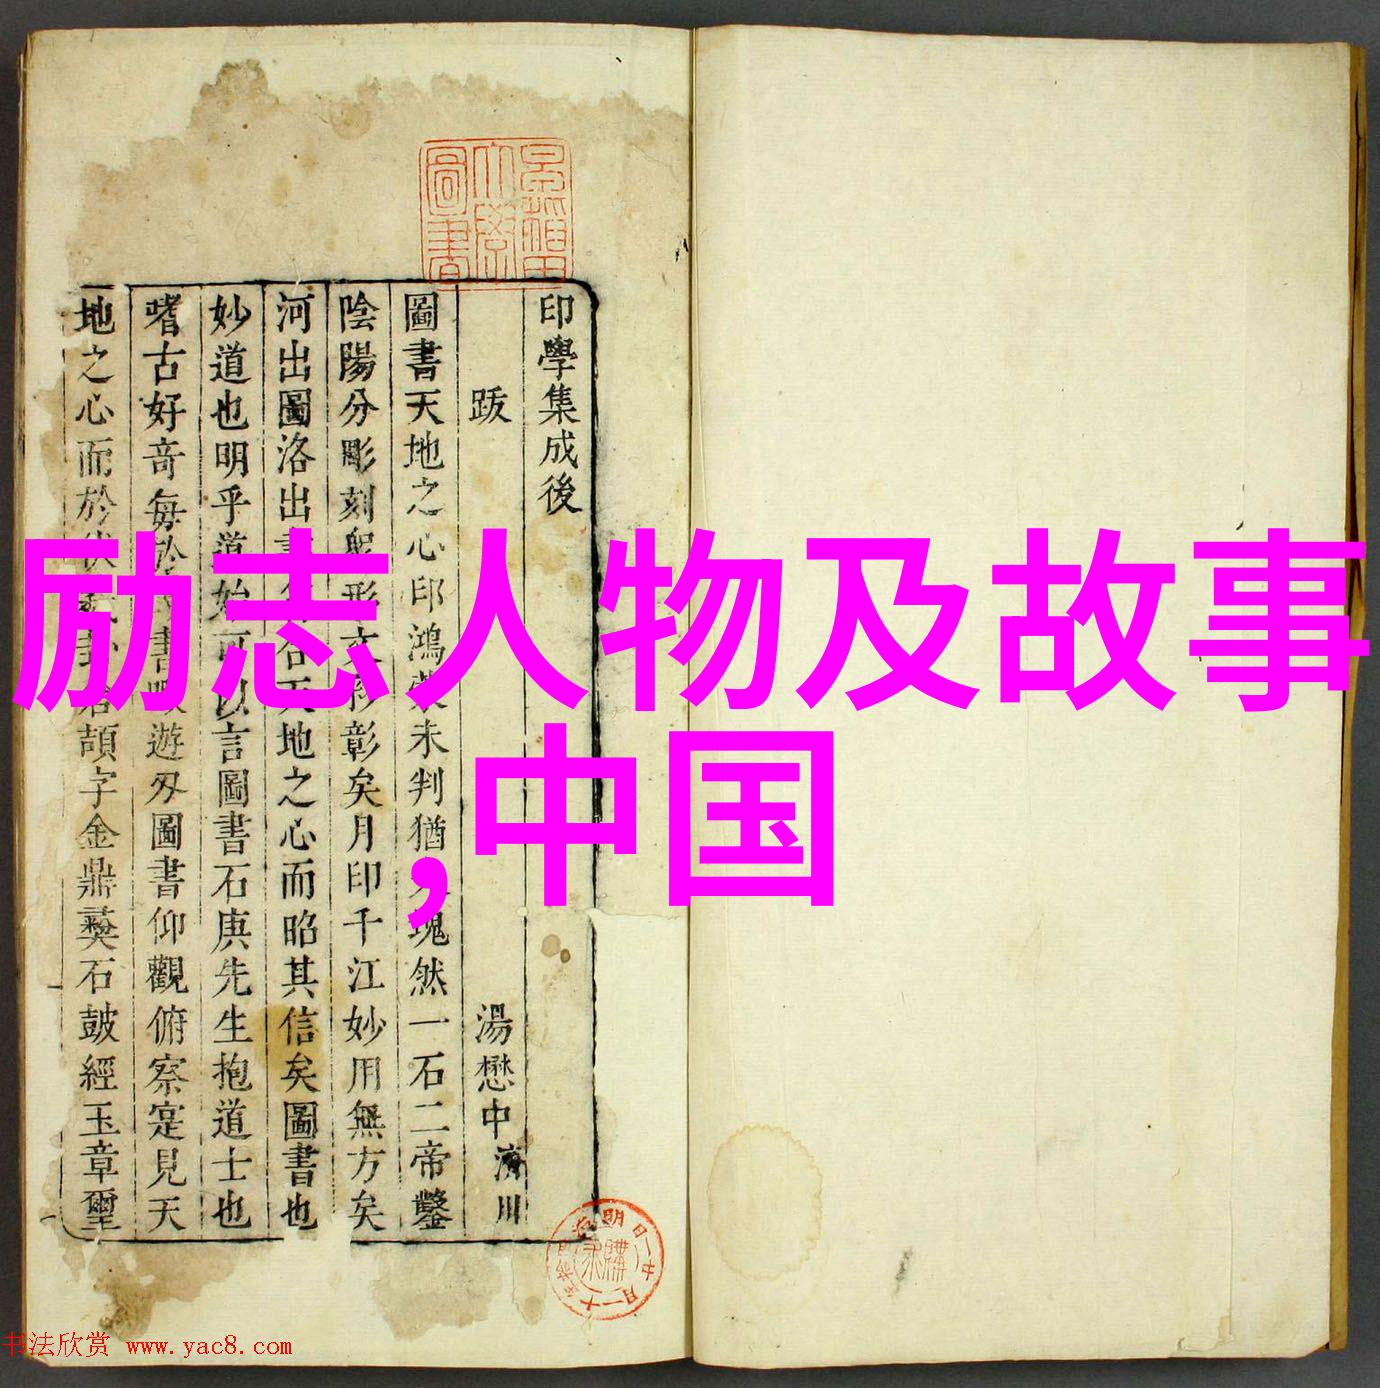 励志人物及故事
,中国
印學集成後
跋
湯懋中濟川
圖書天地之心印鴻未判猶塊然一石二帝鑿
陰陽分彫刻形文彰矣月印千江妙用無方矣
河出圖洛出天地之心而昭其信矣圖書也
妙道也明乎道始可以言圖書石庚先生抱道士也
嗜古好奇每於書遊圖書仰觀俯察寔見天
地之心而於卦頡字金鼎彝石皷經玉章璽
書法欣赏 www.yac8.com